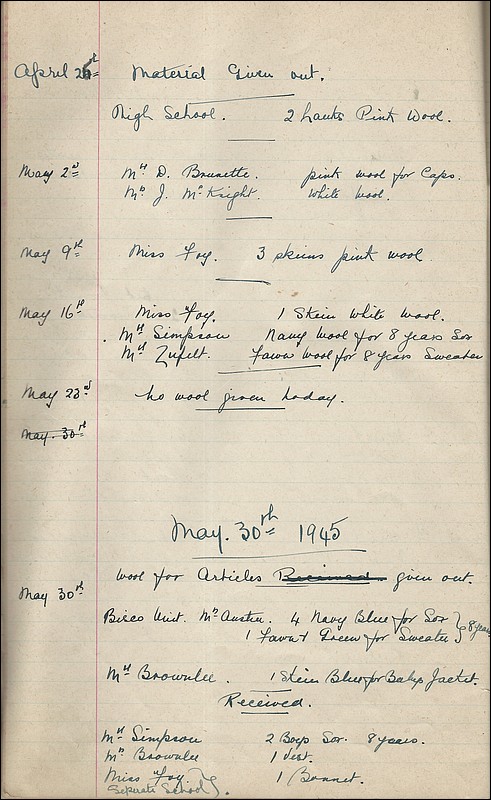 April 25th Material Given out.
High School. 2 hanks Pink Wool.
May 2nd Mrs D. Brunette. pink wool for Caps.
Mrs J. McKnight. White Wool.
May 9th Miss Foy. 3 skeins pink wool
May 16th Miss Foy. 1 Skein White Wool.
Mrs Simpson Navy Wool for 8 years Sox
Mrs Zufelt. Fawn Wool for 8 years Sweater
May 23rd no wool given today.
May. 30th
May. 30th 1945
May 30th wool for Articles Received given out.
Mrs Austin. 4 Navy Blue for Sox
1 Fawn & Green for Sweater } 8 years
Mrs Brownlee. 1 Skein Blue for Babys Jacket.
Received.
Mrs Simpson 2 Boys Sox. 8 years.
Mrs Brownlee 1 Vest.
Miss Foy 1 Bonnet.
Separate School